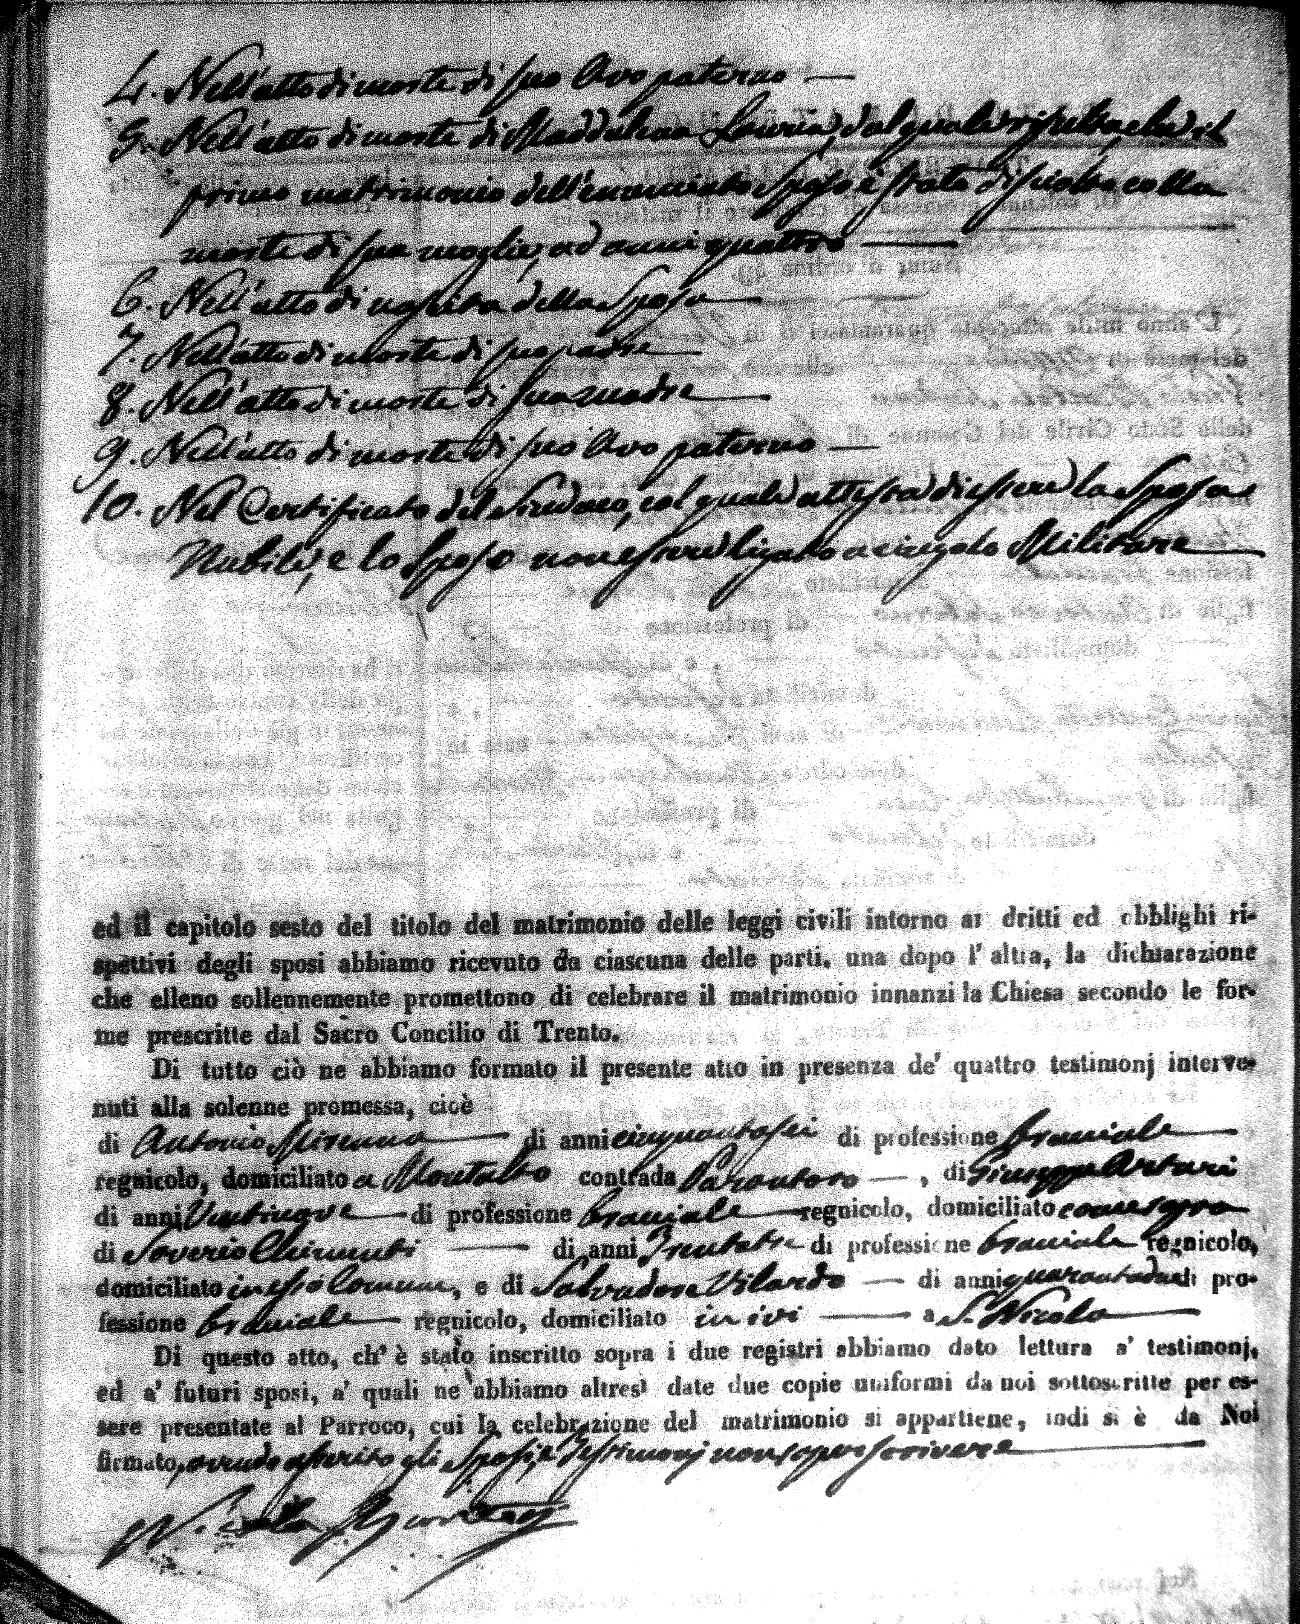 4. Nell'atto di morte di suo Avo paterno
5. Nell'atto di morte di Maddalena Lauria, dal quale risulta, che il
primo matrimonio dell'enunciato Sposo è stato disciolto colla
morte di sua moglie, ad anni quattro
6. Nell'atto di nascita della Sposa
7. Nell'atto di morte di suo padre
8. Nell'atto di morte di sua madre
9. Nell'atto di morte di suo Avo paterno
10. Nel Certificato del Sindaco, col quale attesta di essere la Sposa
Nubile, e lo Sposo non essere ligato a cingolo Militare
ed il capitolo sesto del titolo del matrimonio delle leggi civili intorno ai dritti ed obblighi ri-
spettivi degli sposi abbiamo ricevuto da ciascuna delle parti, una dopo l' altra, la dichiarazione
che elleno sollennemente promettono di celebrare il matrimonio innanzi la Chiesa secondo le for-
me prescritte dal Sacro Concilio di Trento.
Di tutto ciò ne abbiamo formato il presente atto in presenza de' quattro testimonj interve-
nuti alla solenne promessa, cioè
di Antonio di anni cinquantasei di professione braciale
regnicolo, domiciliato a Montalto contrada Parantoro, di Giuseppe Arturi
di anni Venticinque di professione braciale regnicolo, domiciliato come sopra
di Saverio Chimenti di anni Trentatre di professione braciale regnicolo,
domiciliato in esso Comune, e di Salvadore Vilardo di anni quarantadue di pro-
fessione braciale regnicolo, domiciliato in ivi a S. Nicola
Di questo atto, ch' è stato inscritto sopra i due registri abbiamo dato lettura a' testimonj,
ed a' futuri sposi, a' quali ne abbiamo altresì date due copie uniformi da noi sottoscritte per es-
sere presentate al Parroco, cui la celebrazione del matrimonio si appartiene, indi si è da Noi
firmato, avendo asserito gli Sposi, e Testimonj non saper scrivere
Nicola